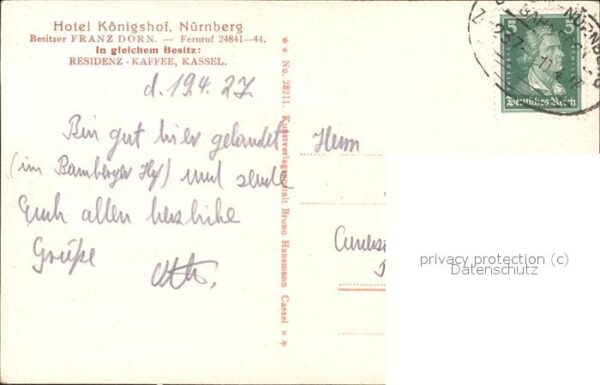 Hotel Königshof, Nürnberg
Besitzer FRANZ DORN. — Fernruf 24841—44.
In gleichem Besitz:
RESIDENZ - KAFFEE, KASSEL.
d. 19.4.27
Bin gut hier gelandet
(im Bamberger Hof) und sende
Euch allen herzliche
Grüße
Otto.
★★ No. 28211. Kunstverlagsanstalt Bruno Hansmann Cassel ★★
Herrn
5
Deutsches Reich
NÜRNBERG
privacy protection (c)
Datenschutz